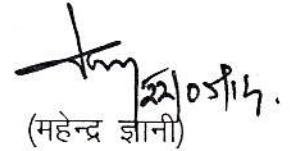 22/05/14.
(महेन्द्र ज्ञानी)